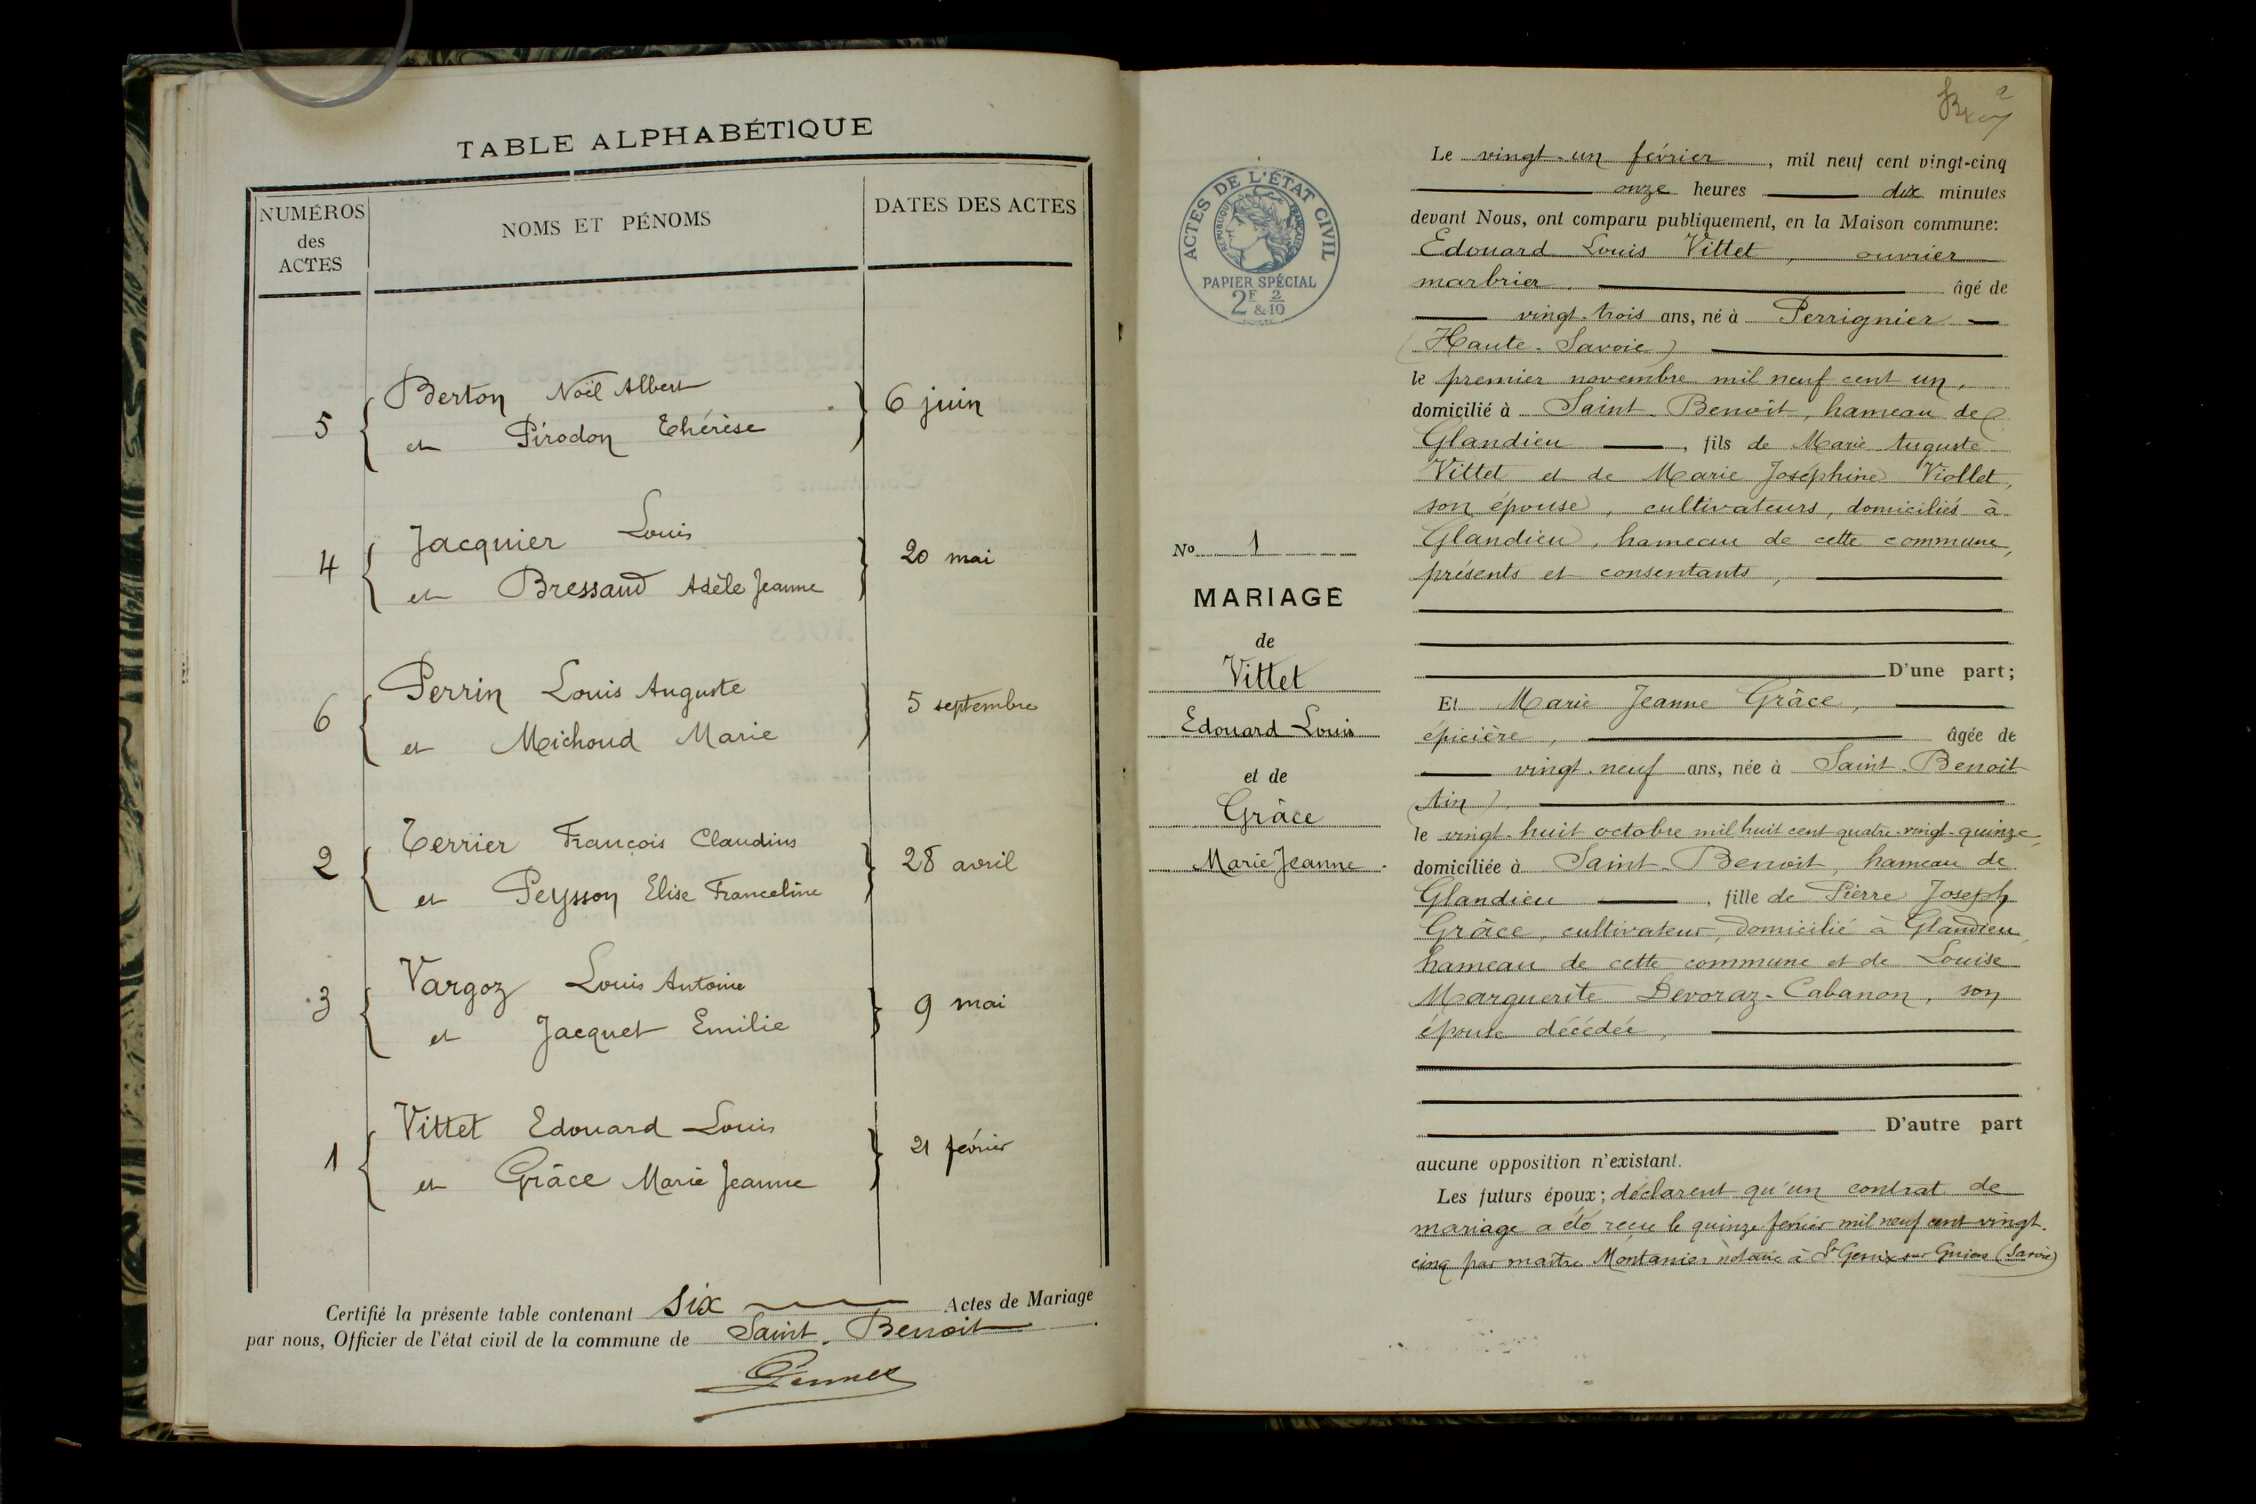 TABLE ALPHABÉTIQUE
NUMÉROS
des
ACTES
NOMS ET PÉNOMS
DATES DES ACTES
5 { Berton Noël Albert
et Pirodon Thérèse } 6 juin
4 { Jacquier Louis
et Bressaud Adèle Jeanne } 20 mai
6 { Perrin Louis Auguste
et Michoud Marie } 5 septembre
2 { Terrier François Claudius
et Peysson Elise Franceline } 28 avril
3 { Vargoz Louis Antoine
et Jacquet Emilie } 9 mai
1 { Vittet Edouard Louis
et Grâce Marie Jeanne } 21 février
Certifié la présente table contenant six Actes de Mariage
par nous, Officier de l'état civil de la commune de Saint-Benoit
ACTES DE L'ÉTAT CIVIL
RÉPUBLIQUE FRANÇAISE
PAPIER SPÉCIAL
2F & 2/10
No 1
MARIAGE
de
Vittet
Edouard Louis
et de
Grâce
Marie Jeanne
Le vingt-un février, mil neuf cent vingt-cinq
onze heures dix minutes
devant Nous, ont comparu publiquement, en la Maison commune:
Edouard Louis Vittet, ouvrier
marbrier. âgé de
vingt-trois ans, né à Perrignier
(Haute-Savoie)
le premier novembre mil neuf cent un,
domicilié à Saint-Benoit, hameau de
Glandieu, fils de Marie Auguste
Vittet et de Marie Joséphine Viollet,
son épouse, cultivateurs, domiciliés à
Glandieu, hameau de cette commune,
présents et consentants,
D'une part;
Et Marie Jeanne Grâce,
épicière, âgée de
vingt-neuf ans, née à Saint-Benoit
(Ain),
le vingt-huit octobre mil huit cent quatre-vingt-quinze,
domiciliée à Saint-Benoit, hameau de
Glandieu, fille de Pierre Joseph
Grâce, cultivateur, domicilié à Glandieu,
hameau de cette commune et de Louise
Marguerite Devoraz-Cabanon, son
épouse décédée,
D'autre part
aucune opposition n'existant.
Les futurs époux; déclarent qu'un contrat de
mariage a été reçu le quinze février mil neuf cent vingt-
cinq par maître Montanier notaire à St Genix-sur-Guiers (Savoie)